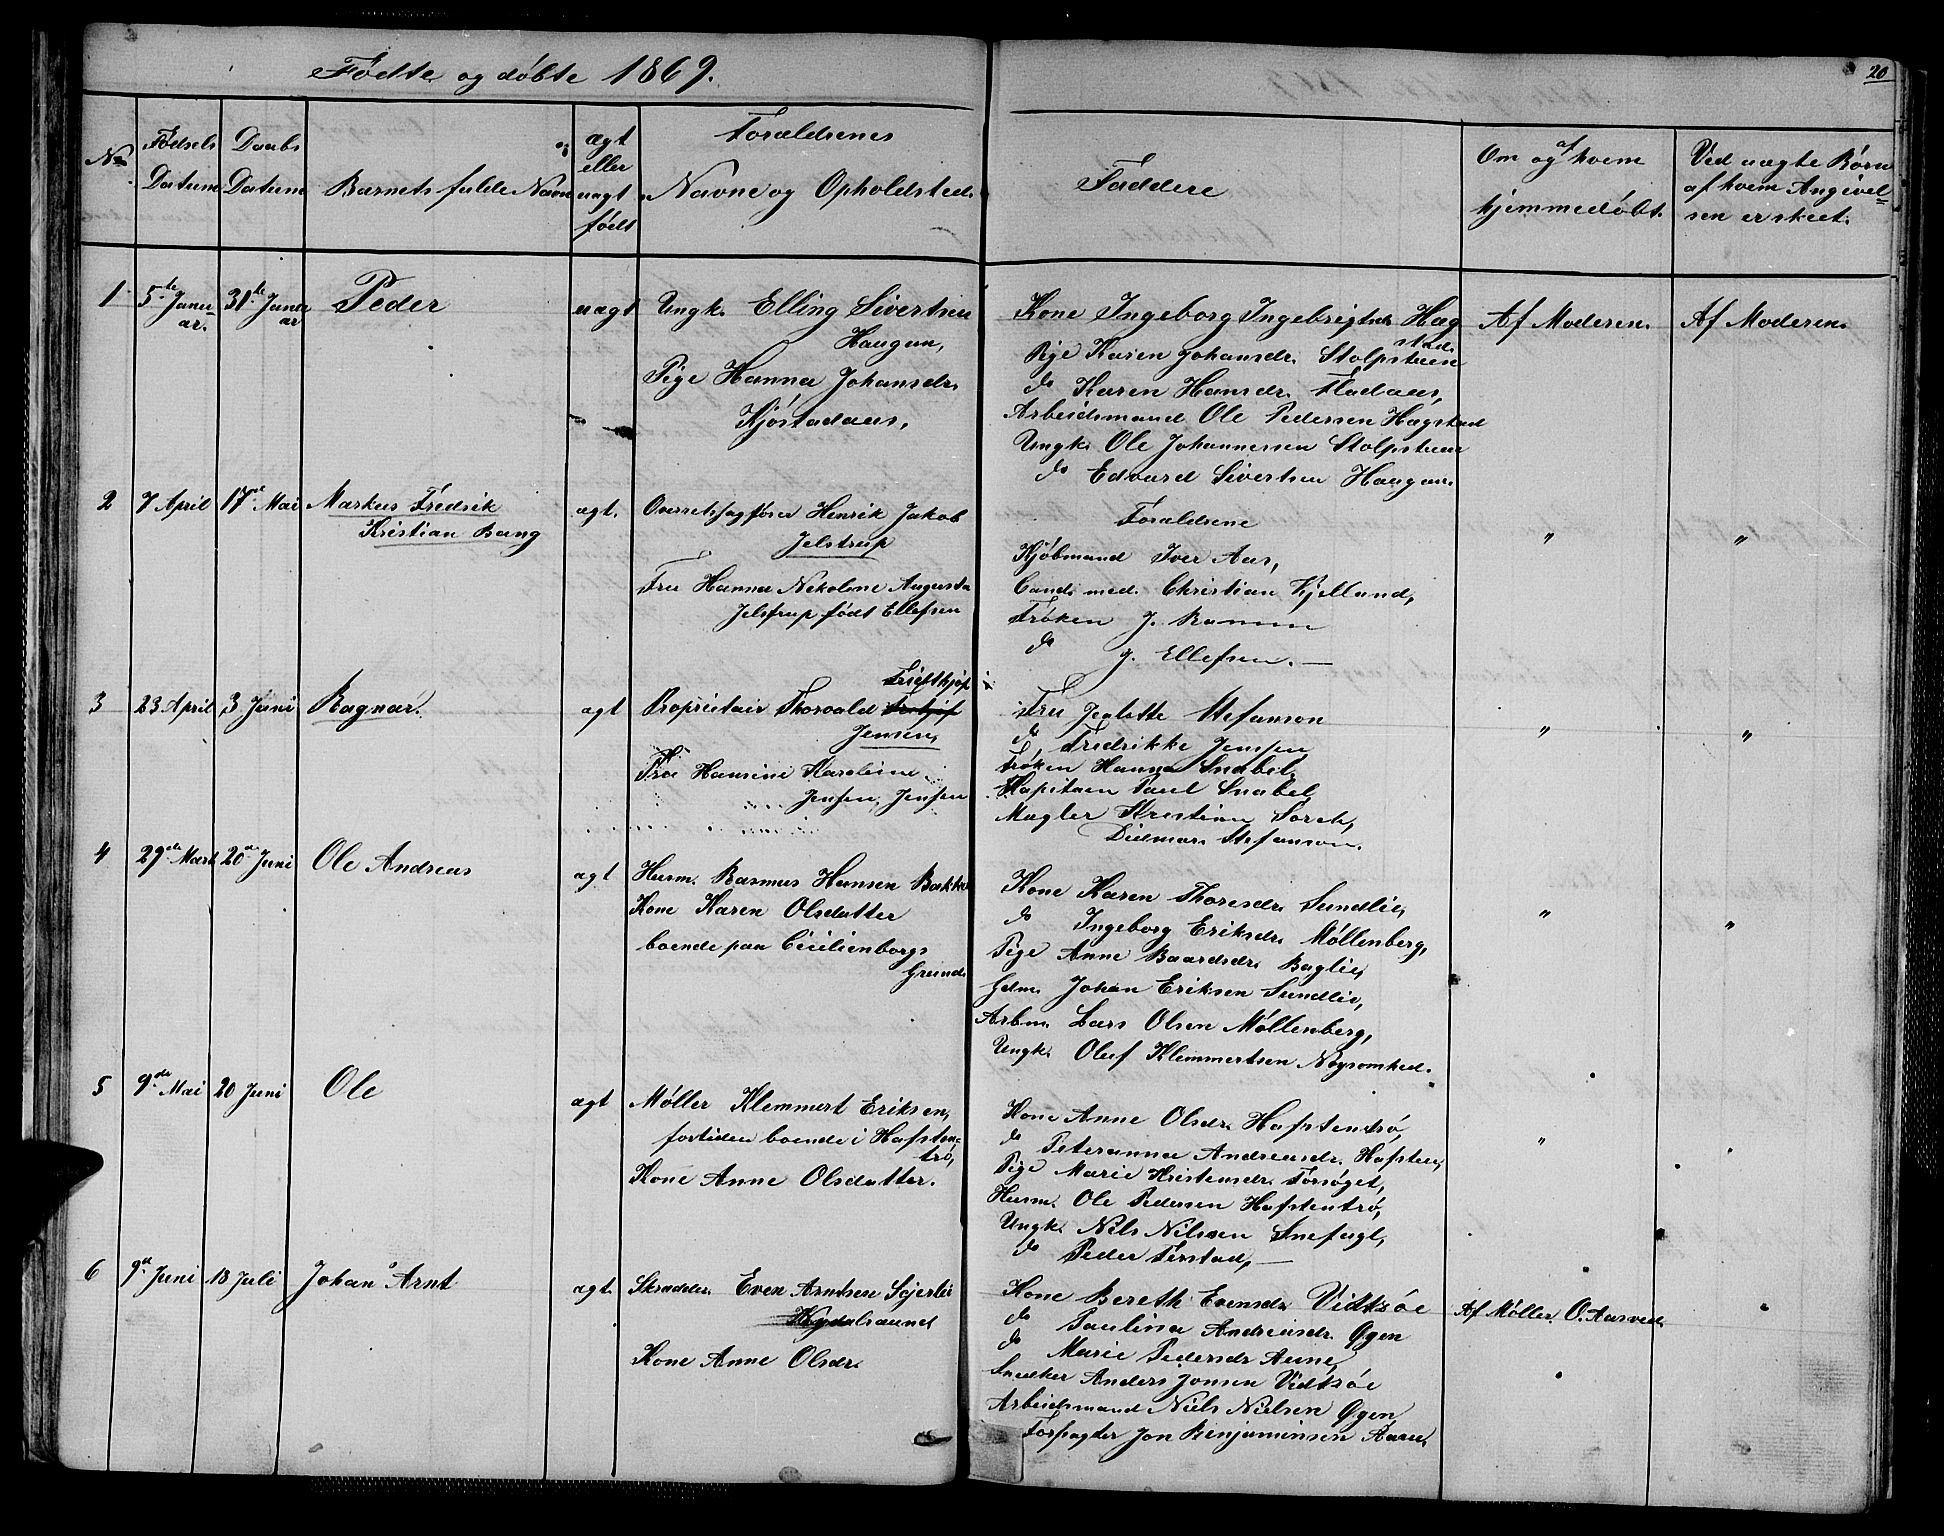 Fødte og døbte 1869.
20
No.
Fødsels Datum
Daabs Datum
Barnets fulde Navn
ægt eller uægt født
Forældrenes Navne og Opholdsted.
Faddere
Om og af hvem hjemmedøbt.
Ved uægte Børn af hvem Angivelsen er skeet.
1
5te Januar.
31te Januar
Peder
uægt
Ungk. Elling Sivertsen
Haugan,
Pige Hanna Johansdr.
Kjøstadaas,
Kone Ingeborg Ingebrigtsdr. Hægstad.
Pige Karen Johansdr. Stolpsteen
do Karen Hansdr. Fladaas,
Arbeidsmand Ole Pedersen Hægstad
Ungk. Ole Johannessen Stolpsteen
do Edvard Sivertsen Haugan.
Af Moderen.
Af Moderen.
2
7 April
17de Mai
Markus Fredrik
Kristian Bang
ægt.
Overretssagfører Henrik Jakob
Jelstrup
Fru Hanna Nikoline Augusta
Jelstrup født Ellefsen
Forældrene
Kjøbmand Iver Aas,
Cand. med. Christian Kjelland,
Frøken J.
do J. Ellefsen. —
"
"
3
23 April
3 Juni
Ragnar.
ægt
Fridthjof
Proprietair Thorvald
Jensen,
Fru Hansine Karoline
Jensen, Jensen
Fru Jealette Stefanson
do, Fredrikke Jensen
Frøken Hanna Snabel,
Kapitain Paul Snabel
Mægler Kristian Torch,
Didmar Stefanson.
"
"
4
29de Marts
20de Juni
Ole Andreas
ægt
Husm. Rasmus Hansen Bakke
Kone Karen Olsdatter
boende paa Cicilienborgs
Grund.
Kone Karen Thoresdr. Sundlie,
do Ingeborg Eriksdr. Møllenberg,
Pige Anne Baardsdr. Baglie,
Johan Eriksen Sundlie,
Arbm. Lars Olsen Møllenberg,
Ungk. Oluf Klemmertsen Nøysomhed.
"
"
5
9de Mai
20 Juni
Ole
ægt
Møller Klemmert Eriksen,
fortiden boende i Hafstentrø,
Kone Anne Olsdatter.
Kone Anne Olsdr. Hafstentrø,
do Peteranna Andreasdr. Hafsten,
Pige Marie Kristensdr. Forsøget,
Husm. Ole Pedersen Hafstentrø,
Ungk. Nils Nilsen Snefugl,
do Peder Ferstad, —
"
6
9de Juni
18 Juli
Johan Arnt
ægt.
Skrædder. Even Arntsen
Kone Anne Olsdr.
Kone Bereth Evensdr. Vidtzøe
do Paulina Andreasdr. Øgen
do Marie Pedersdr Aune,
Snedker Anders Jonsen Vidtzøe
Arbeidsmand Niels Nielsen Øgen,
Forpagter Jon Benjaminsen Aune.
Af Møller. O. Aasved.